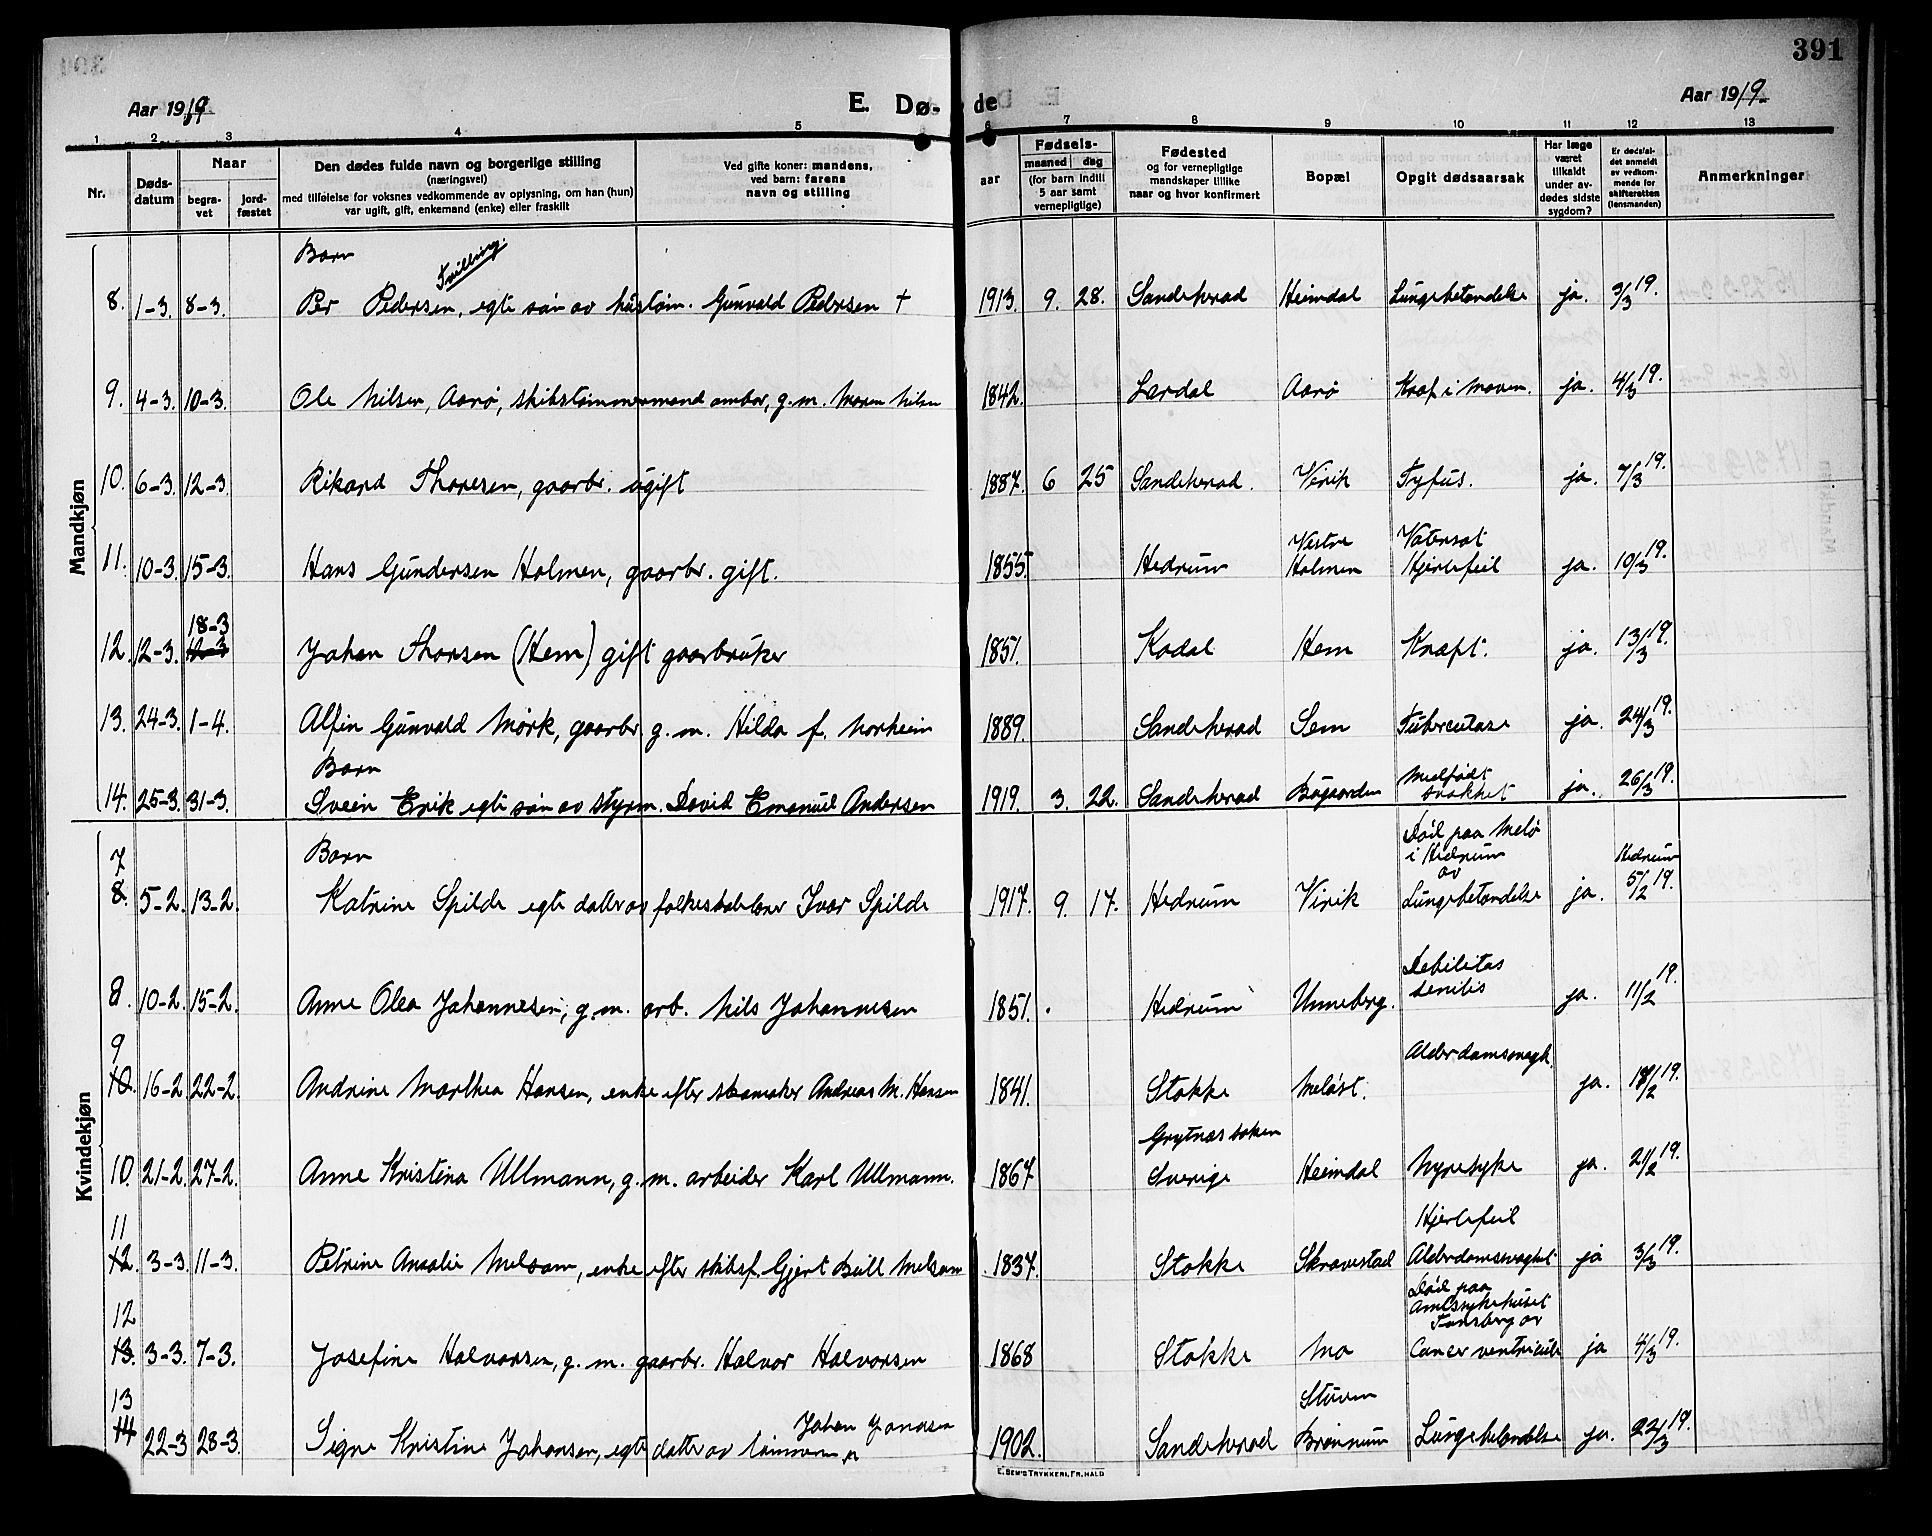 391
Aar 1919
E. Dø-
de
Aar 1919.
1 2 3 4 5 6 7 8 9 10 11 12 13
Nr.
Døds-datum
Naar
begra-vet
jord-fæstet
Den dødes fulde navn og borgerlige stilling
(næringsvei)
med tilføielse for voksnes vedkommende av oplysning, om han (hun)
var ugift, gift, enkemand (enke) eller fraskilt
Ved gifte koner: mandens,
ved barn: farens
navn og stilling
Fødsels-
aar
maaned
dag
(for barn indtil
5 aar samt
vernepligtige)
Fødested
og for vernepligtige
mandskaper tillike
naar og hvor konfirmert
Bopæl
Opgit dødsaarsak
Har læge
været
tilkaldt
under av-
dødes sidste
sygdom?
Er dødsfal-
det anmeldt
av vedkom-
mende for
skifteretten
(lensmanden)
Anmerkninger
Mandkjøn
Barn
Tvilling.
8. 1-3. 8-3. Per Pedersen, egte søn av hustøm. Gunvald Pedersen † 1913. 9. 28. Sandeherad Heimdal Lungebetændelse ja. 3/3 19.
9. 4-3. 10-3. Ole Nilsen, Aarø, skibstømmermand ombor, g. m. Maren Nilsen 1842. Lardal Aarø Kræf i maven. ja. 4/3 19.
10. 6-3. 12-3. Rikard Thoresen, gaarbr. ugift 1887. 6 25 Sandeherad. Virik Tyfus. ja. 7/3 19.
11. 10-3. 15-3. Hans Gundersen Holmen, gaarbr. gift. 1855. Hedrum Vestre Holmen Vatersot Hjertefeil ja. 10/3 19.
18-3
12. 12-3. 12-3 Johan Thorsen (Hem) gift gaarbruker 1851. Kodal Hem Kræft. ja. 13/3 19.
13. 24-3. 1-4. Alfin Gunvald Mørk, gaarbr g. m. Hilda f. Norheim 1889. Sandeherad Sem Tuberculose ja. 24/3 19.
Barn
14. 25-3. 31-3. Svein Erik egte søn av styrm. David Emanuel Andersen 1919. 3. 22. Sandeherad Bugaarden Medfødt svakhet ja. 26/3 19.
Kvindekjøn
Barn
7 8. 5-2. 13-2. Katrine Spilde egte datter av folkeskolelærer Ivar Spilde 1917. 9. 17. Hedrum Virik Død paa Melø i Hedrum av Lungebetændelse ja. Hedrum 5/2 19.
8. 10-2. 15-2. Anne Olea Johannesen, g. m. arb. Nils Johannesen 1851. Hedrum Unneberg. Debilitas senilis ja. 11/2 19.
9 10. 16-2. 22-2. Andrine Marthea Hansen, enke efter skomaker Andreas M. Hansen 1841. Stokke Meløst. Alderdomssvagh. ja. 18/2 19.
10. 21-2. 27-2. Anne Kristina Ullmann, g. m. arbeider Karl Ullmann. 1867 Grytnæs soken Sverige Heimdal Nyresyke ja. 21/2 19.
11 12. 3-3. 11-3. Petrine Amalie Melsom, enke efter skibsf. Gjert Bull Melsom 1837. Stokke Skravestad Hjertefeil Alderdomssvaghet ja 3/3 19.
12 13. 3-3. 7-3. Josefine Halvorsen, g. m. gaarbr. Halvor Halvorsen 1868 Stokke Mo Død paa Amtssykehuset Tønsberg av Cancer ventriculi ja 4/3 19.
13 14 22-3 28-3. Signe Kristine Johansen, egte datter av tømmerm. Johan Jonasen 1902. Sandeherad Stuven Brønnum Lungebetændelse ja. 22/3 19.
E. SEM'S TRYKKERI, FR.HALD